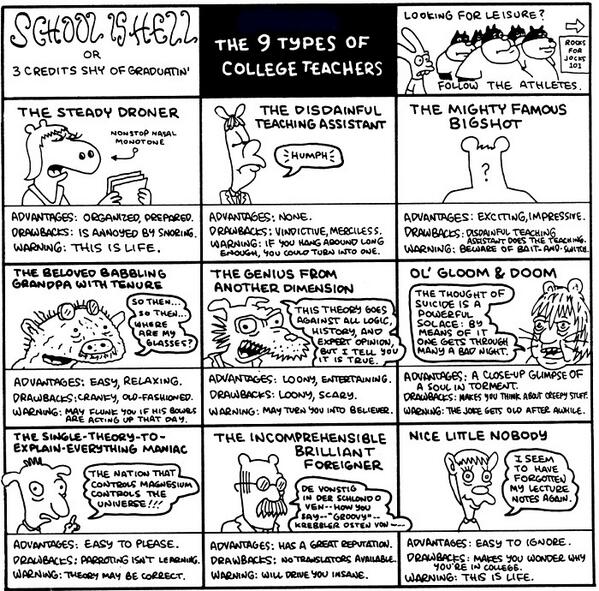 SCHOOL IS HELL
OR
3 CREDITS SHY OF GRADUATIN'
THE 9 TYPES OF
COLLEGE TEACHERS
LOOKING FOR LEISURE?
ROCKS
FOR
JOCKS
101
FOLLOW THE ATHLETES.
THE STEADY DRONER
NONSTOP NASAL
MONOTONE
ADVANTAGES: ORGANIZED, PREPARED.
DRAWBACKS: IS ANNOYED BY SNORING.
WARNING: THIS IS LIFE.
THE DISDAINFUL
TEACHING ASSISTANT
HUMPH
ADVANTAGES: NONE.
DRAWBACKS: VINDICTIVE, MERCILESS.
WARNING: IF YOU HANG AROUND LONG
ENOUGH, YOU COULD TURN INTO ONE.
THE MIGHTY FAMOUS
BIGSHOT
?
ADVANTAGES: EXCITING, IMPRESSIVE.
DRAWBACKS: DISDAINFUL TEACHING
ASSISTANT DOES THE TEACHING.
WARNING: BEWARE OF BAIT-AND-SWITCH.
THE BELOVED BABBLING
GRANDPA WITH TENURE
SO THEN...
SO THEN...
WHERE
ARE MY
GLASSES?
ADVANTAGES: EASY, RELAXING.
DRAWBACKS: CRANKY, OLD-FASHIONED.
WARNING: MAY FLUNK YOU IF HIS BOWELS
ARE ACTING UP THAT DAY.
THE GENIUS FROM
ANOTHER DIMENSION
THIS THEORY GOES
AGAINST ALL LOGIC,
HISTORY, AND
EXPERT OPINION,
BUT I TELL YOU
IT IS TRUE.
ADVANTAGES: LOONY, ENTERTAINING.
DRAWBACKS: LOONY, SCARY.
WARNING: MAY TURN YOU INTO BELIEVER.
OL' GLOOM & DOOM
THE THOUGHT OF
SUICIDE IS A
POWERFUL
SOLACE: BY
MEANS OF IT
ONE GETS THROUGH
MANY A BAD NIGHT.
ADVANTAGES: A CLOSE-UP GLIMPSE OF
A SOUL IN TORMENT.
DRAWBACKS: MAKES YOU THINK ABOUT CREEPY STUFF.
WARNING: THE JOKE GETS OLD AFTER AWHILE.
THE SINGLE-THEORY-TO-
EXPLAIN-EVERYTHING MANIAC
THE NATION THAT
CONTROLS MAGNESIUM
CONTROLS THE
UNIVERSE!!!
ADVANTAGES: EASY TO PLEASE.
DRAWBACKS: PARROTING ISN'T LEARNING.
WARNING: THEORY MAY BE CORRECT.
THE INCOMPREHENSIBLE
BRILLIANT
FOREIGNER
DE VONSTIG
IN DER SUHLOND O
VEN--HOW YOU
SAY--"GROOVY"--
KREBBLER OSTEN VON
ADVANTAGES: HAS A GREAT REPUTATION.
DRAWBACKS: NO TRANSLATORS AVAILABLE.
WARNING: WILL DRIVE YOU INSANE.
NICE LITTLE NOBODY
I SEEM
TO HAVE
FORGOTTEN
MY LECTURE
NOTES AGAIN.
ADVANTAGES: EASY TO IGNORE.
DRAWBACKS: MAKES YOU WONDER WHY
YOU'RE IN COLLEGE.
WARNING: THIS IS LIFE.